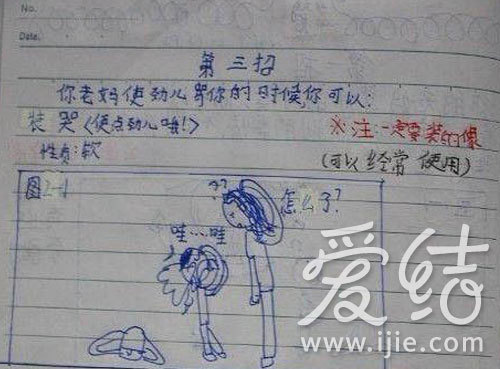 No.
Date.
第三招
你老妈使劲儿骂你的时候你可以:
装哭〈使点劲儿哦!〉
※注一定要装的像
性质:软
(可以经常使用)
图2-1
??
怎么了?
哇…哇
爱结
www.ijie.com